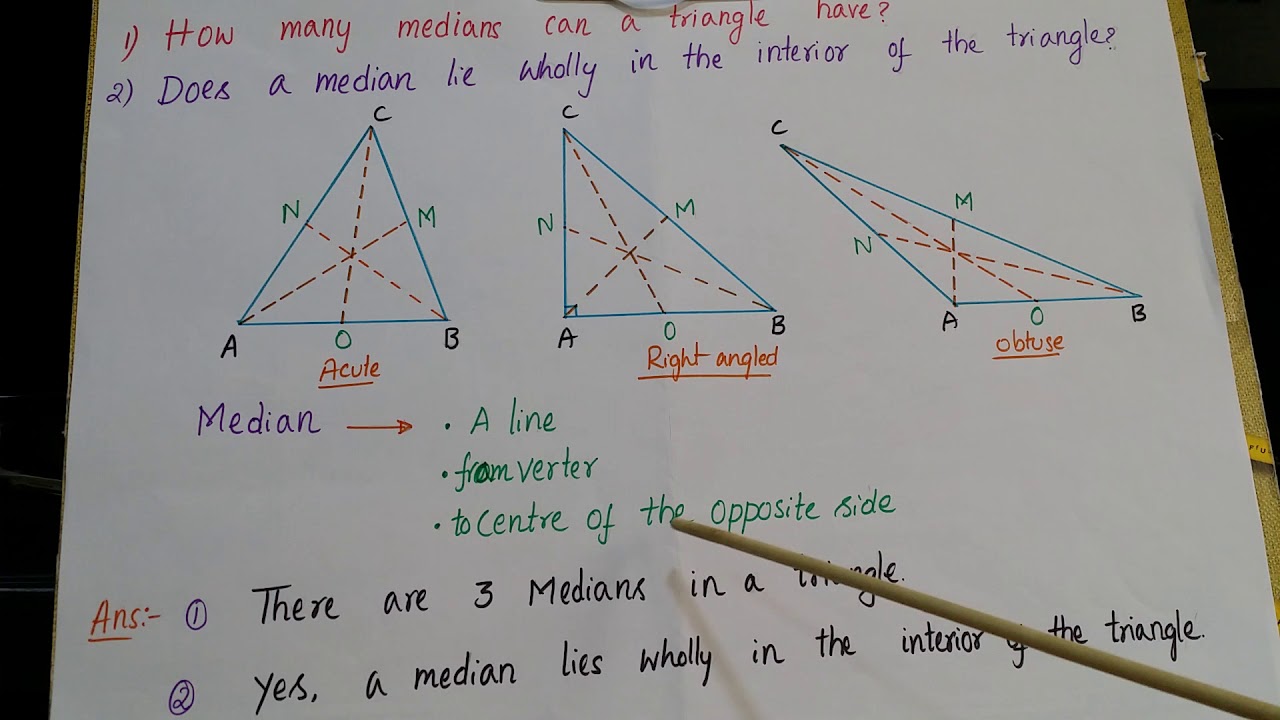 1) How many medians can a triangle have?
2) Does a median lie wholly in the interior of the triangle?
C
C
C
N
M
N
M
M
N
A
O
B
A
O
B
A
O
B
Acute
Right angled
obtuse
Median → • A line
• from verter
• to centre of the opposite side
Ans:- ① There are 3 Medians in a triangle.
② Yes, a median lies wholly in the interior of the triangle.